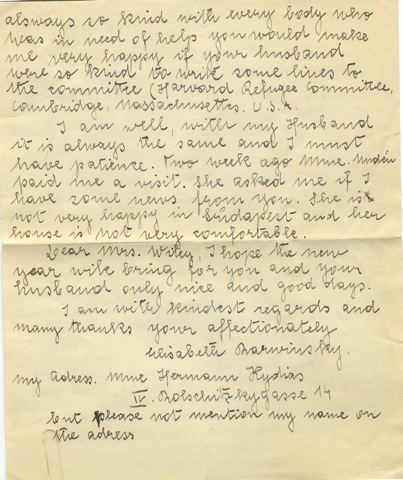 always so kind with every body who
was in need of help you would make
me very happy if your husband
were so kind to write some lines to
the committee (Harvard Refugee Committee,
Cambridge, Massachusettes. U.S.A.
I am well, with my Husband
it is always the same and I must
have patience. Two week ago Mme.
paid me a visit. She asked me if I
have some news from you. She is
not very happy in Budapest and her
house is not very comfortable.
Dear Mrs. Wiley, I hope the new
year will bring for you and your
husband only nice and good days.
I am with kindest regards and
many thanks your affectionately
Elisabeth Barwinsky.
my adress. Mme Hermann Hydias
IV. 14
but please not mention my name on
the adress